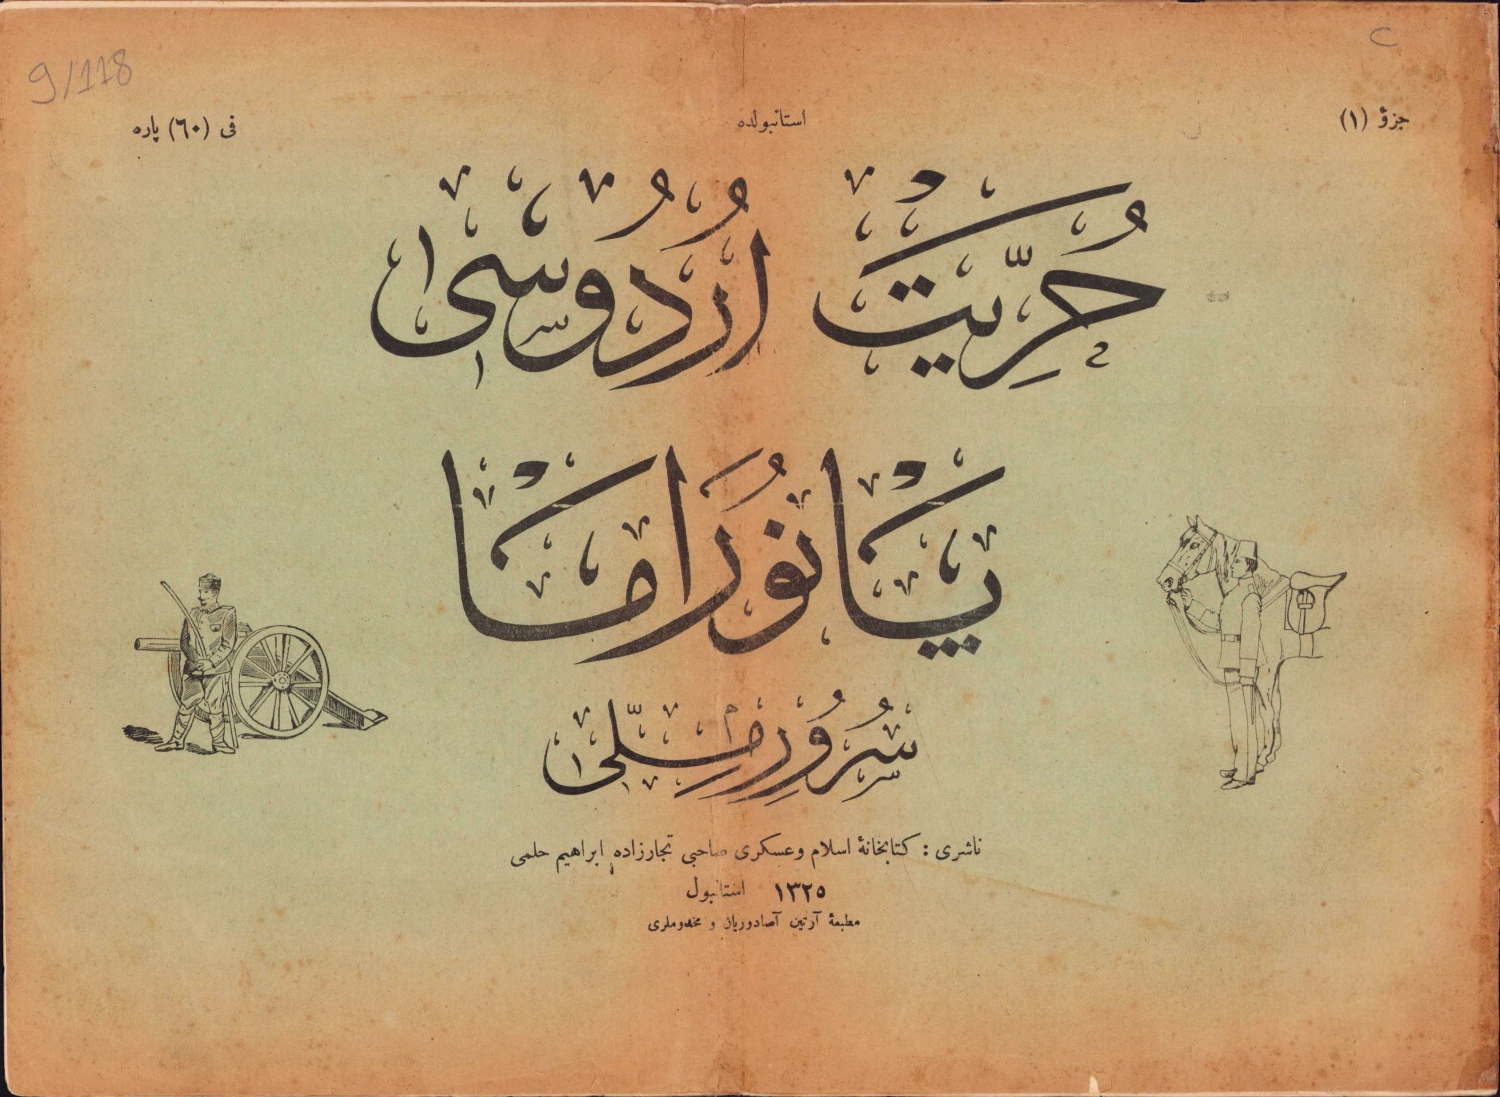 جزؤ (١)
استانبولده
فی (٦٠) پاره
9/118
حُرِّیَتْ اُرْدُوسی
پانُورَاما
سُرُورِ مِلّی
ناشری : کتابخانهٔ اسلام وعسکری صاحبی تجارزاده ابراهیم حلمی
استانبول ١٣٢٥
مطبعهٔ آرتین آصادوریان و مخدوملری